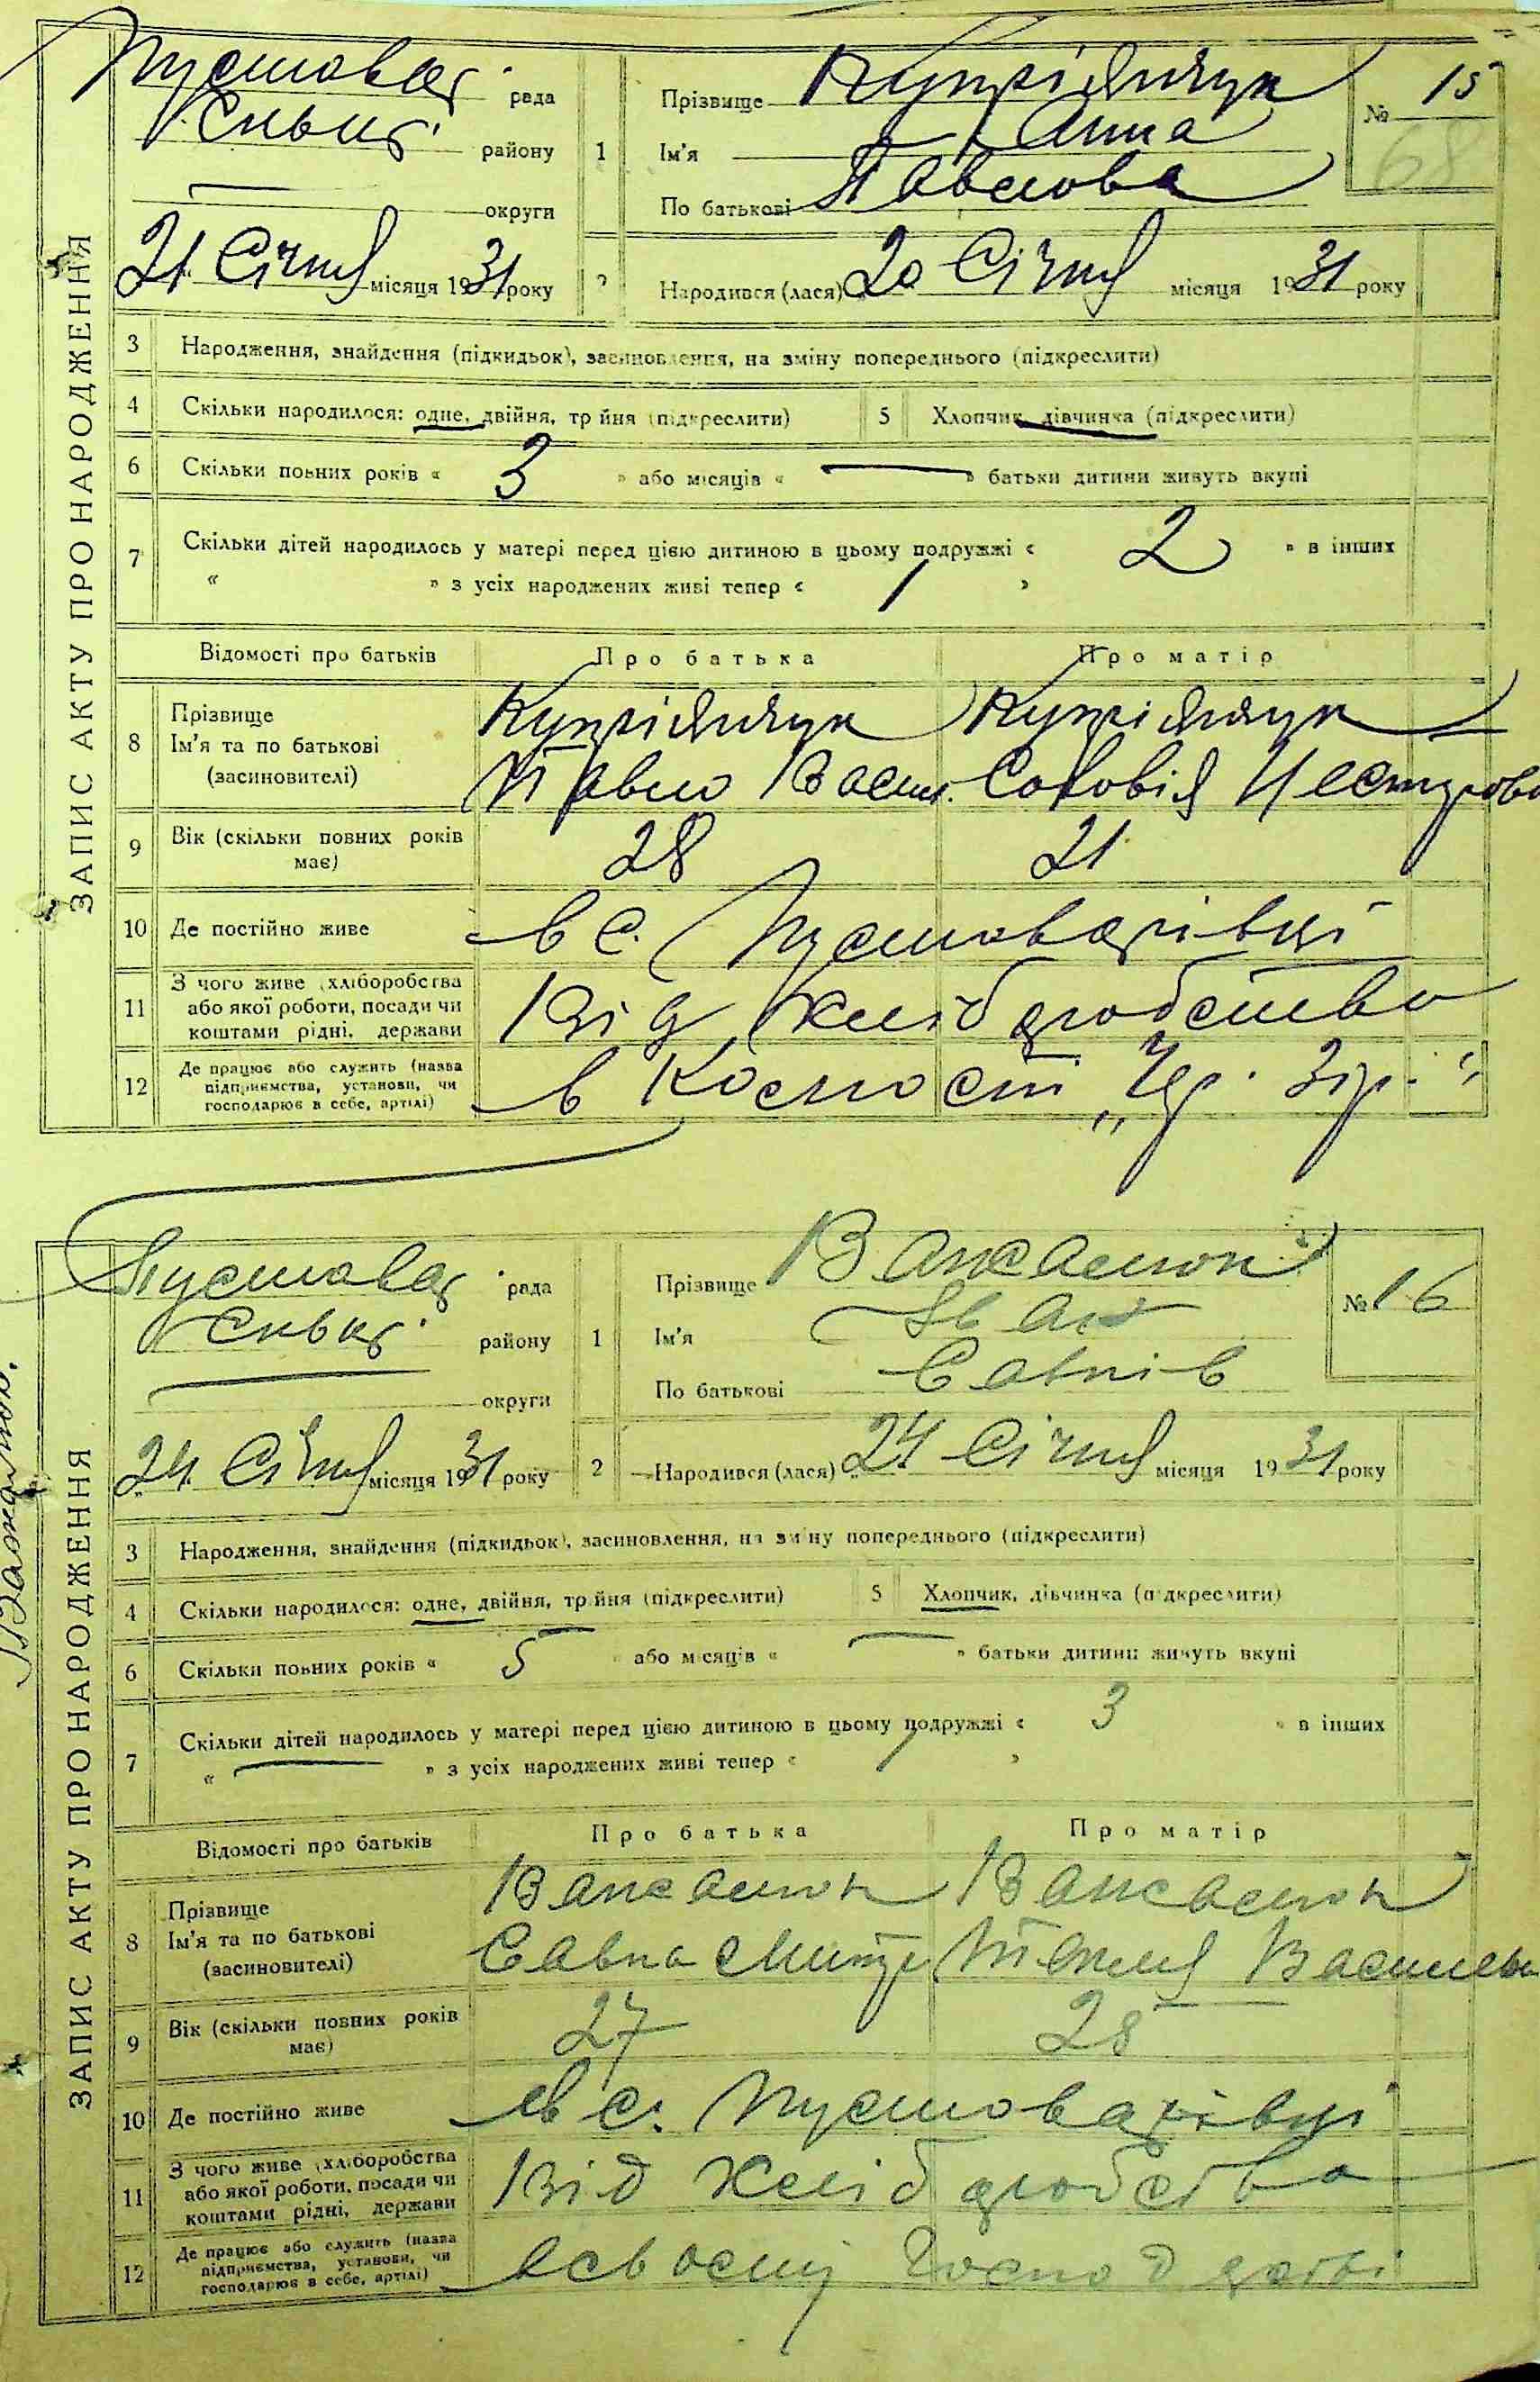 ЗАПИС АКТУ ПРО НАРОДЖЕННЯ
Пустовар. рада
району
округи
21 Січня місяця 1931 року
1
Прізвище Купріянчук
Ім'я Анна
По батькові Павлова
№ 15
68
2
Народився (лася) 20 Січня місяця 1931 року
3 Народження, знайдення (підкидьок), засиновлення, на зміну попереднього (підкреслити)
4 Скільки народилося: одне, двійня, трійня (підкреслити) 5 Хлопчик, дівчинка (підкреслити)
6 Скільки повних років « 3 » або місяців « — » батьки дитини живуть вкупі
7 Скільки дітей народилось у матері перед цією дитиною в цьому подружжі « 2 » в інших
« » з усіх народжених живі тепер « 1 »
Відомості про батьків Про батька Про матір
8 Прізвище Купріянчук Купріянчук
Ім'я та по батькові Павло Васил. Соловія Нестерова
(засиновителі)
9 Вік (скільки повних років має) 28 21
10 Де постійно живе в с. Пустоварівці
11 З чого живе (хліборобства або якої роботи, посади чи коштами рідні, держави Від хліборобства
12 Де працює або служить (назва підприємства, установи, чи господарює в себе, артілі) в „Чер. Зір."
Важалюк.
ЗАПИС АКТУ ПРО НАРОДЖЕННЯ
Пустовар. рада
району
округи
24 Січня місяця 1931 року
1
Прізвище Важалюк
Ім'я Іван
По батькові Савків
№ 16
2
Народився (лася) 24 Січня місяця 1931 року
3 Народження, знайдення (підкидьок), засиновлення, на зміну попереднього (підкреслити)
4 Скільки народилося: одне, двійня, трійня (підкреслити) 5 Хлопчик, дівчинка (підкреслити)
6 Скільки повних років « 5 » або місяців « — » батьки дитини живуть вкупі
7 Скільки дітей народилось у матері перед цією дитиною в цьому подружжі « 3 » в інших
« — » з усіх народжених живі тепер « 1 »
Відомості про батьків Про батька Про матір
8 Прізвище Важалюк Важалюк
Ім'я та по батькові Савка Текля Васильев
(засиновителі)
9 Вік (скільки повних років має) 27 28
10 Де постійно живе в с. Пустоварівці
11 З чого живе (хліборобства або якої роботи, посади чи коштами рідні, держави Від хліборобства
12 Де працює або служить (назва підприємства, установи, чи господарює в себе, артілі) в своєму господарстві